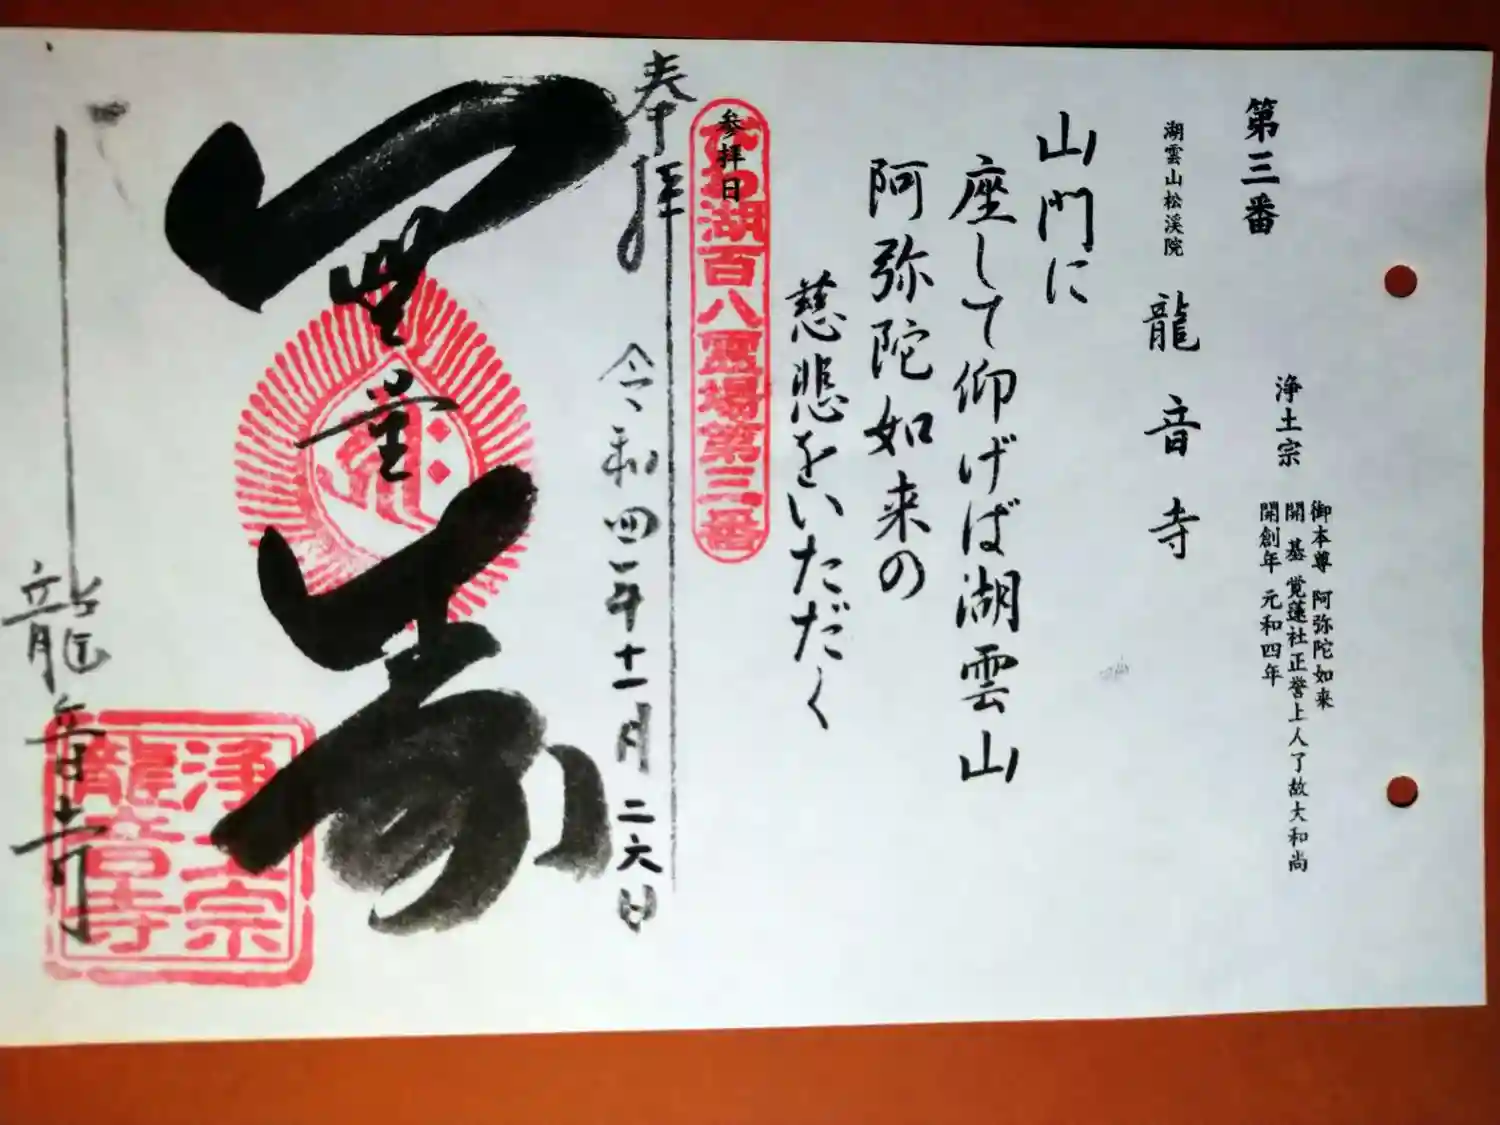 第三番
浄土宗
御本尊 阿弥陀如来
開 基 覚蓮社正誉上人了故大和尚
開創年 元和四年
湖雲山松渓院 龍音寺
山門に
座して仰げば湖雲山
阿弥陀如来の
慈悲をいただく
参拝日
びわ湖百八霊場第三番
奉拝
令和四年十一月二六日
無量寿
龍音寺
浄土宗
龍音寺